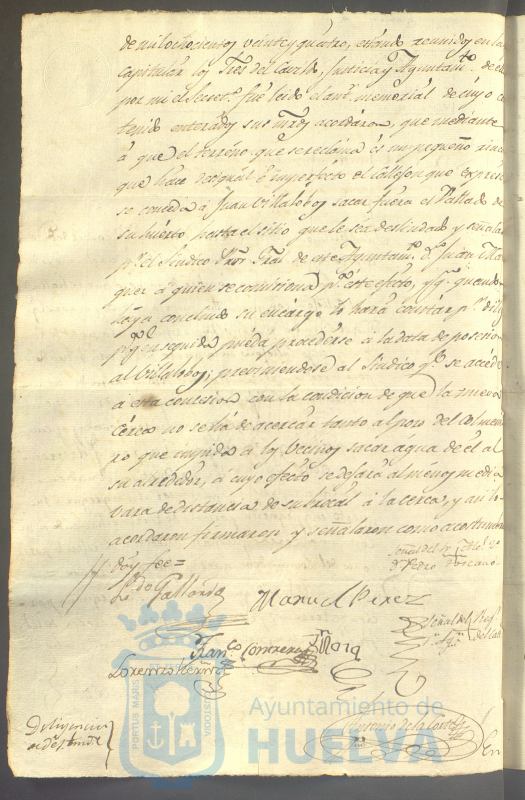 de mil ochocientos veinte y quatro, estando reunidos en la
capitular los Sres del Cavildo, Justicia y Ayuntamto. de el
por mi el Secreto. fué leido el ant. memorial de cuyo co
tenido enterados sus mrds acordaron, que mediante
á que el terreno que se reclama és un pequeño rinc
que hace desigual é imperfecto el callejon que expresa
se conceda á Juan Villalobos sacar fuera el Vallado de
su huerto hasta el sitio que le sea deslindado y señala
pr. el Síndico Pror Gral de este Ayuntamto. Dn Juan
quer á quien se comisiona pa. este efecto, y qe. quando
haya concluido su encargo lo hará constar pr. dilig
pa. qe en seguida pueda procederse á la data de posesion
al Villalobos; previniendose al Síndico qe. se accede
á esta concesion con la condicion de que la nueva
cerca no se há de acercar tanto al pozo del Colmen
ro que impida á los vecinos sacar água de él al
su alrededor, á cuyo efecto se dejará al menos media
vara de distancia de su brocal á la cerca, y asi lo
acordaron firmaron y señalaron como acostumbr
doy fee=
Señal del
Dn Pedro Toscano
Ldo Gallardo
Manuel Perez
Señal del Rejr
Franco Contreras
Lorenzo
Antonio de la Corte
Diligencia
En
PORTUS MARIS CUSTODIA
Ayuntamiento de
HUELVA